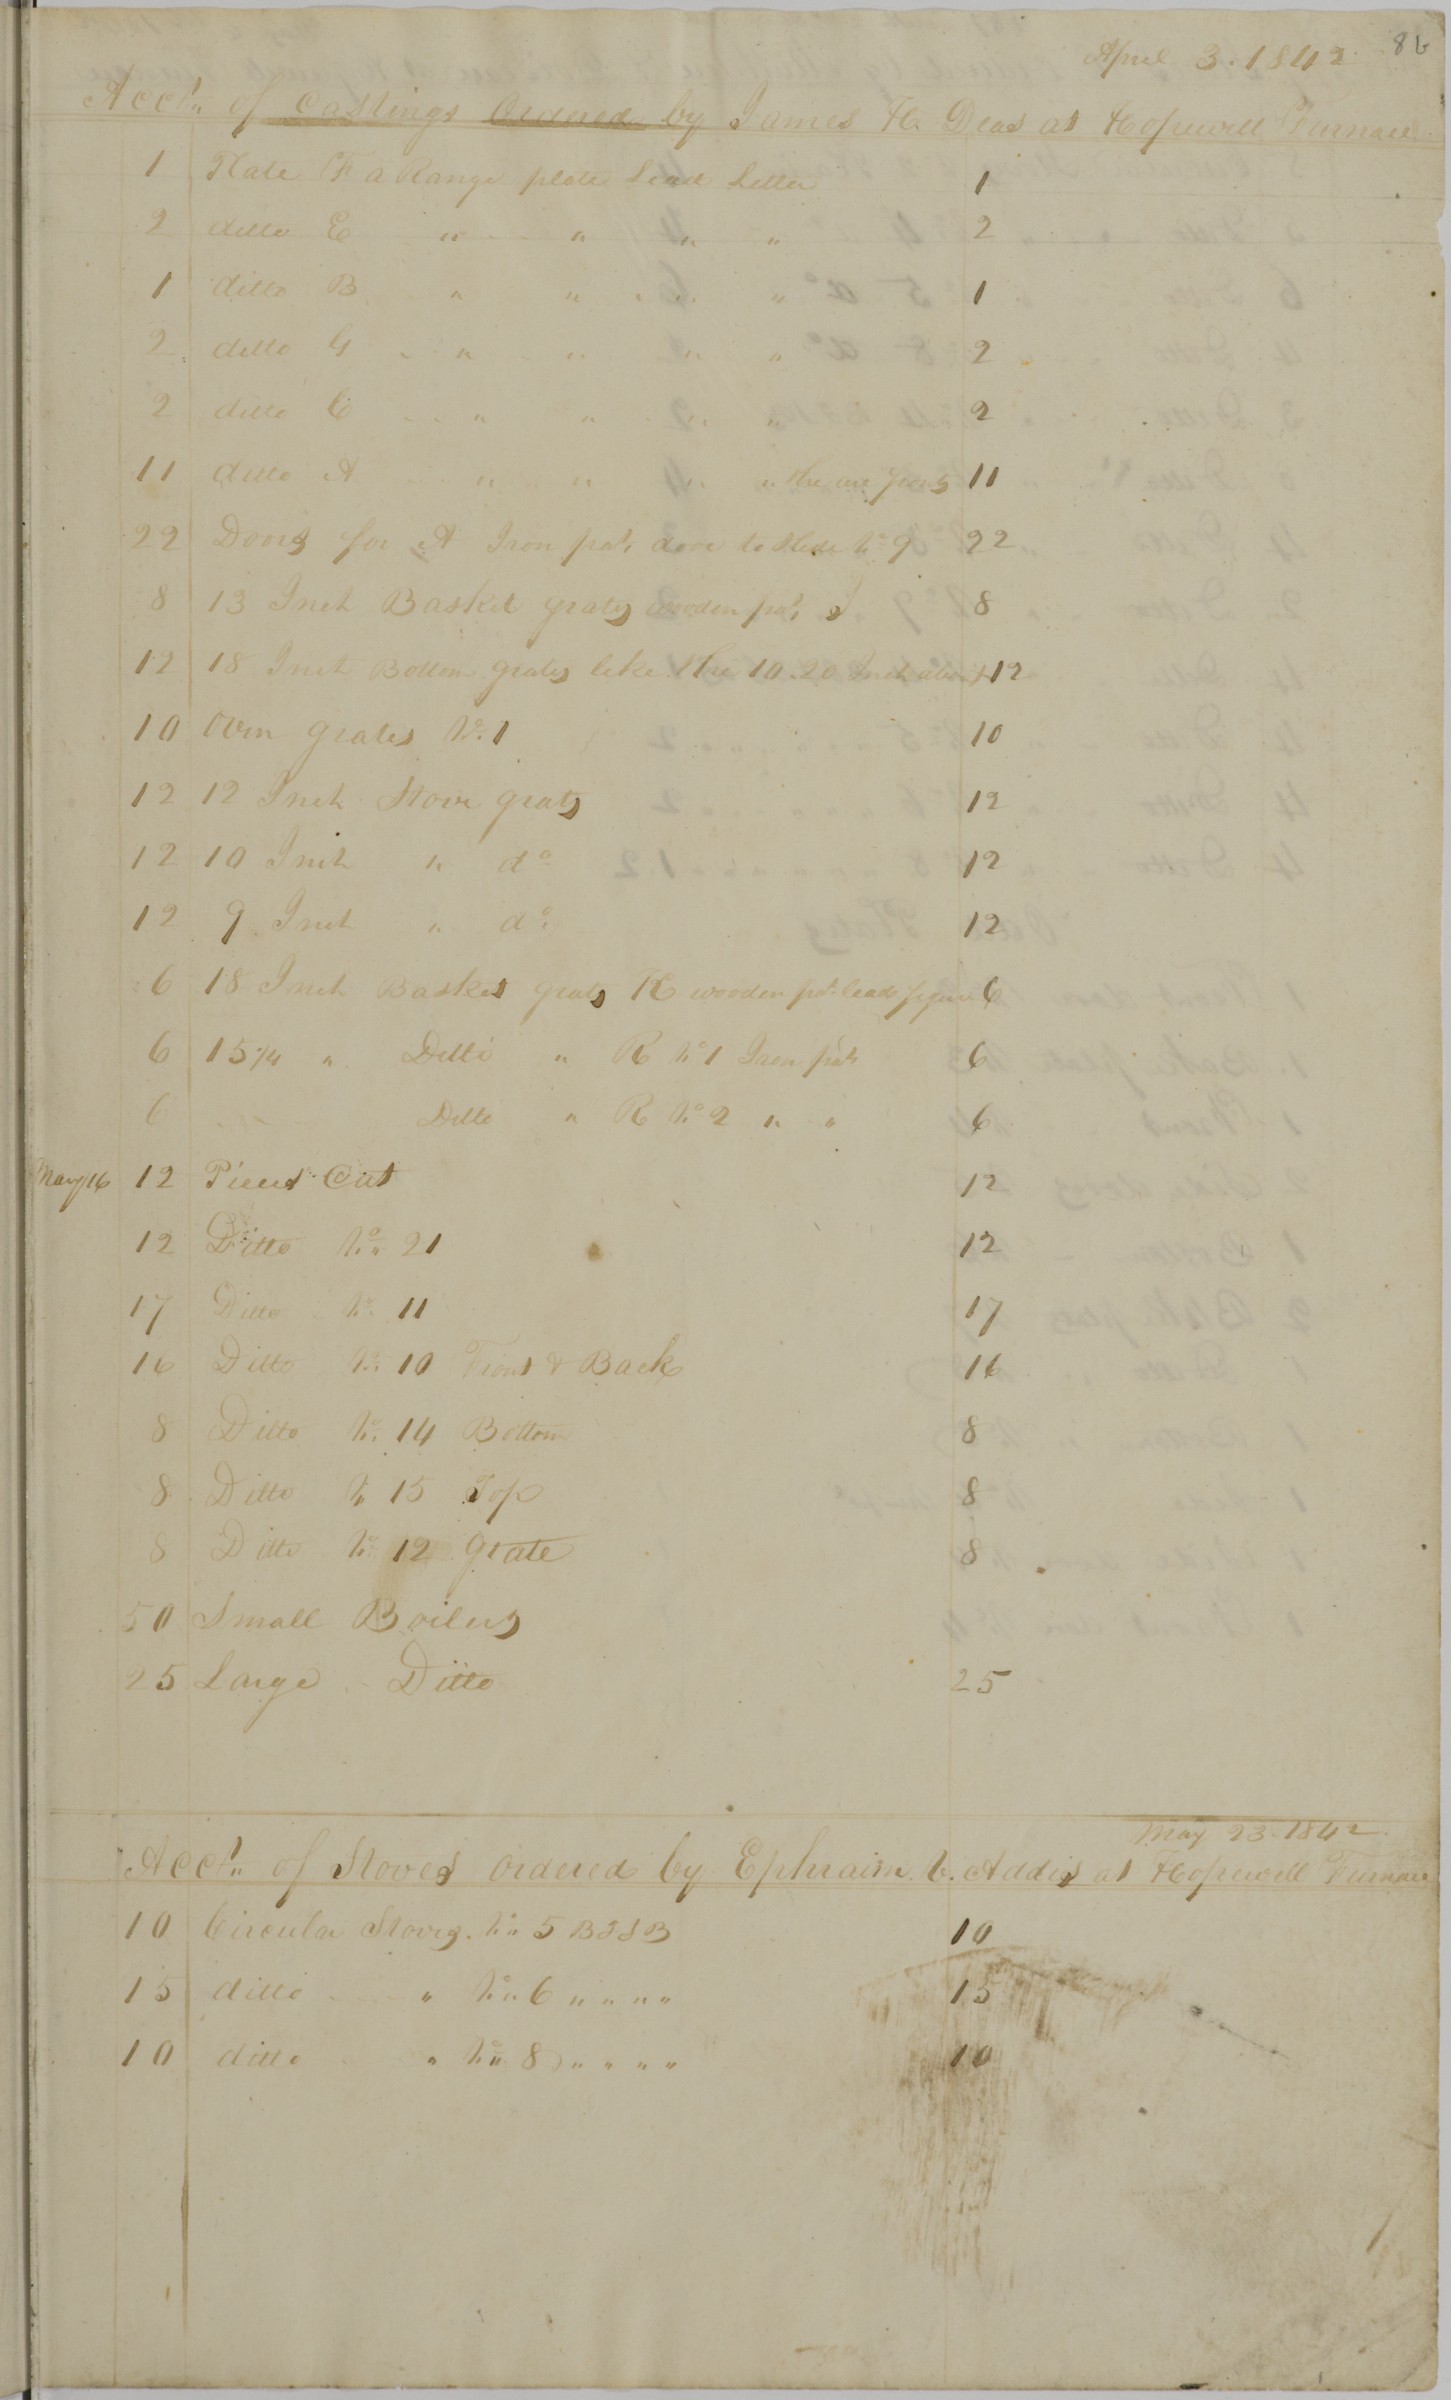 86
April 3. 1842
Acct. of Castings Ordered by James H. Deas at Hopewell Furnace
1 Plate F a Range plate Lead Letter 1
2 ditto E " " " " 2
1 ditto B " " " " 1
2 ditto G " " " " 2
2 ditto C " " " " 2
11 ditto A " " " " 11
22 Doors for A Iron pat. door to Slide No 9 22
8 13 Inch Basket grates wooden pat. I 8
12 18 Inch Bottom grates like the 10.20 Inch 12
10 Oven grates No. 1 10
12 12 Inch Stove grates 12
12 10 Inch " do 12
12 9 Inch " do 12
6 18 Inch Basket grates H wooden pat. lead figure 6
6 15 1/4 " Ditto " R No 1 Iron pat. 6
6 Ditto " R No 2 " " 6
May 16 12 Pieces Cut 12
12 Ditto No. 21 12
17 Ditto No. 11 17
16 Ditto No. 10 Front & Back 16
8 Ditto No. 14 Bottom 8
8 Ditto No 15 Top 8
8 Ditto No. 12 Grate 8
50 Small Boilers
25 Large Ditto 25
May 23. 1842
Acct. of Stoves ordered by Ephraim C. Addis at Hopewell Furnace
10 Circular Stoves. No. 5 10
15 ditto " No. 6 " " " " 15
10 ditto " No. 8 " " " " 10